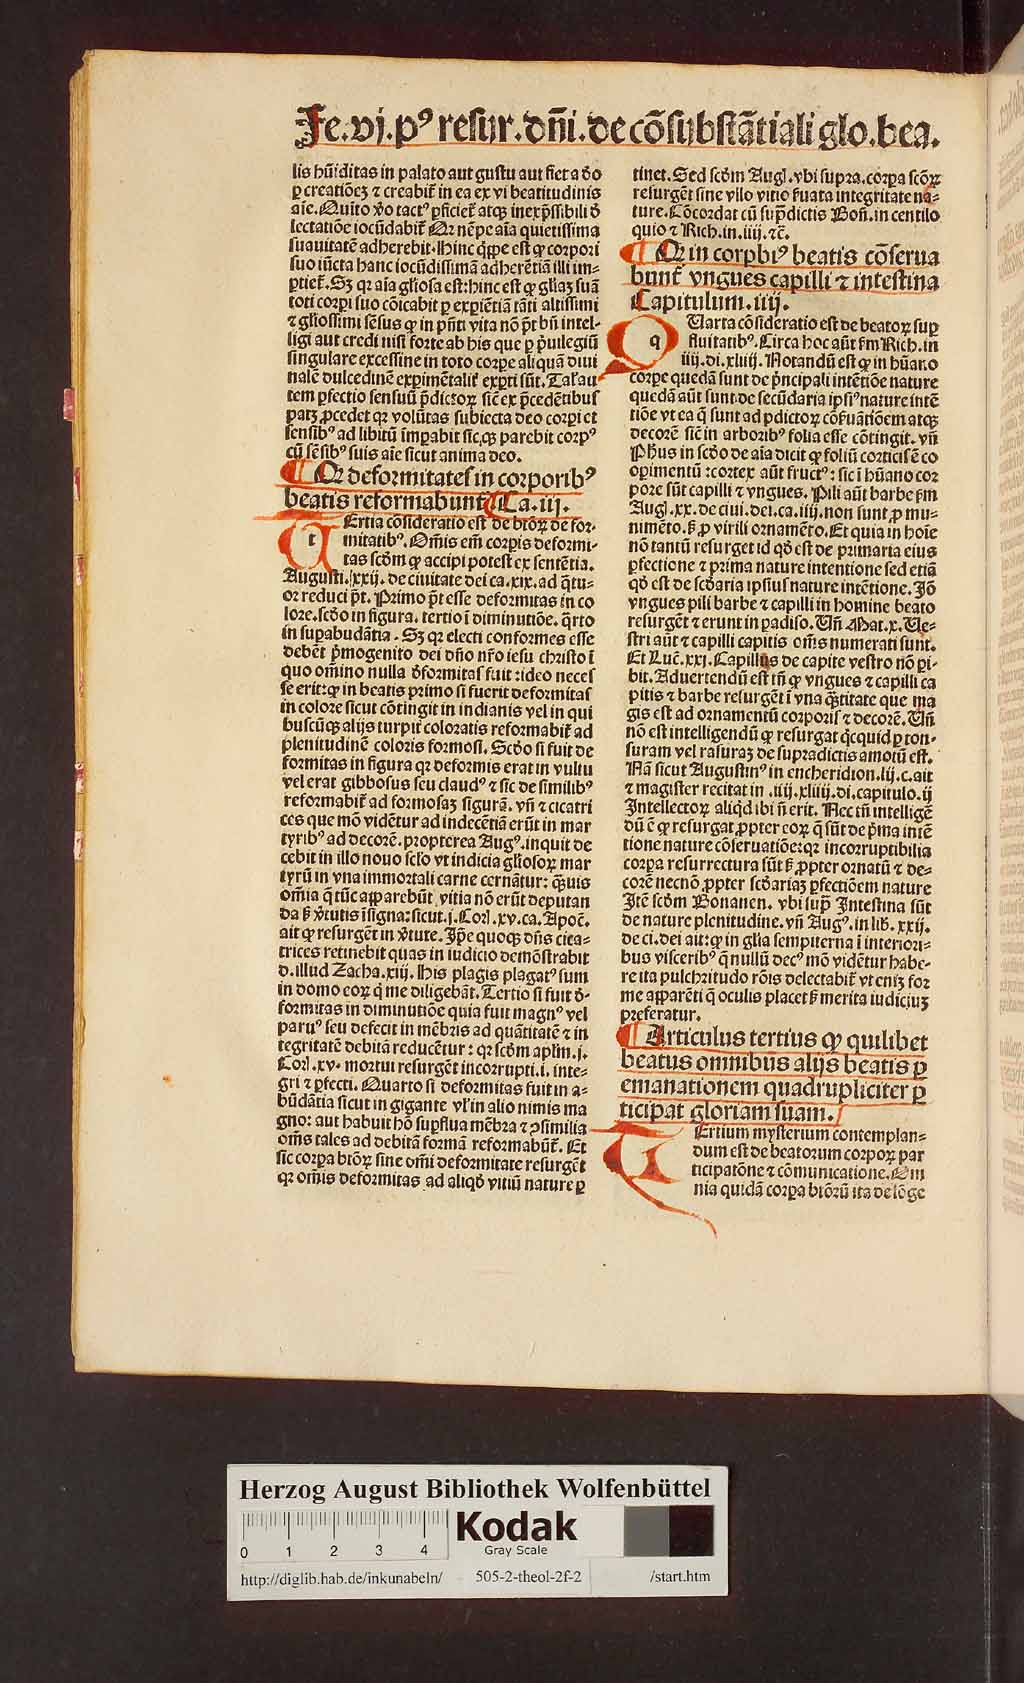 Fe.vj.pꝰ resur.dñi.de cõsubstãtiali glo.bea.
lis hũiditas in palato aut gustu aut fiet a deo
ꝑ creatiõeꝫ ⁊ creabit᷑ in ea ex vi beatitudinis
aĩe. Quito v̾o tactꝰ ꝑficiet᷑ atqꝫ inexp̃ssibili d̾
lectatiõe iocũdabit᷑ Qꝛ nẽpe aĩa quietissima
suauitatẽ adherebit. Hinc q̃ppe est ꝙ corpori
suo iũcta hanc iocũdissimã adherẽtiã illi im-
ꝑtiet᷑. Sꝫ qꝛ aĩa gl̃iosa est: hinc est ꝙ gl̃iaꝫ suã
toti corpi suo cõicabit ꝑ exꝑiẽtiã tãti altissimi
⁊ gl̃iosissimi sẽsus ꝙ in pñti vita nõ p̃t bñ intel-
ligi aut credi nisi forte ab his que ꝑ p̃uilegiũ
singulare excessiue in toto corꝑe aliquã diui
nalẽ dulcedinẽ exꝑimẽtalit᷑ exꝑti sũt. Tal᷑ au
tem ꝑfectio sensuũ p̃dictoꝝ sic̃ ex p̃cedẽtibus
patꝫ ꝓcedet qꝛ volũtas subiecta deo corpi et
sensibꝰ ad libitũ imꝑabit sic,ꝙ parebit corpꝰ
cũ sẽsibꝰ suis aĩe sicut anima deo.
¶ Qꝛ deformitates in corporibꝰ
beatis reformabunt᷑ Ca.iij.
t Ertia cõsideratio est de btõꝝ defor-
mitatibꝰ. Om̃is em̃ corꝑis deformi-
tas scd̾m ꝙ accipi potest ex sentẽtia.
Augusti. xxij. de ciuitate dei ca.xix. ad q̃tu-
or reduci p̃t. Primo p̃t esse deformitas in co
lore. scd̾o in figura. tertio ĩ diminutiõe. q̃rto
in suꝑabũdãtia. Sꝫ qꝛ electi conformes esse
debẽt p̃mogenito dei dño nr̃o iesu christo ĩ
quo om̃ino nulla d̾formitas fuit: ideo neces
se erit: ꝙ in beatis primo si fuerit deformitas
in colore sicut cõtingit in indianis vel in qui
buscũqꝫ alijs turpit᷑ coloratis reformabit᷑ ad
plenitudinẽ coloris formosi. Scd̾o si fuit de
formitas in figura qꝛ deformis erat in vultu
vel erat gibbosus seu claudꝰ ⁊ sic de similibꝰ
reformabit᷑ ad formosaꝫ figurã. vñ ⁊ cicatri
ces que mõ vidẽtur ad indecẽtiã erũt in mar
tyribꝰ ad decorẽ. propterea Augꝰ. inquit de
cebit in illo nouo sclo vt indicia gl̃iosoꝝ mar
tyrũ in vna immortali carne cernãtur: q̃uis
om̃ia q̃ tũc apparebũt, vitia nõ erũt deputan
da sꝫ v̾tutis ĩsigna: sicut. j. Corl. xv. ca. Apoc̃.
ait ꝙ resurgẽt in v̾tute. Ip̃e quoqꝫ dñs cica-
trices retinebit quas in iudicio demõstrabit
d. illud Zacha. xiij. His plagis plagatꝰ sum
in domo eoꝝ q̃ me diligebãt. Tertio si fuit d̾-
formitas in diminutiõe quia fuit magnꝰ vel
paruꝰ seu defecit in mẽbris ad quãtitatẽ ⁊ in
tegritatẽ debitã reducẽtur: qꝛ scd̾m apl̃m. j.
Corl. xv. mortui resurgẽt incorrupti. i. inte-
gri ⁊ ꝑfecti. Quarto si deformitas fuit in a-
bũdãtia sicut in gigante vl᷑ in alio nimis ma
gno: aut habuit hõ suꝑflua mẽbra ⁊ ꝯsimilia
om̃s tales ad debitã formã reformabũt᷑. Et
sic corꝑa btõꝝ sine om̃i deformitate resurgẽt
qꝛ om̃is deformitas ad aliqd̾ vitiũ nature ꝑ
tinet. Sed scd̾m Augl. vbi supra. corꝑa scõꝝ
resurgẽt sine vllo vitio ẜuata integritate na-
ture. Cõcordat cũ sup̃dictis Boñ. in centilo
quio ⁊ Rich. in. iiij. ⁊c̃.
¶ Qꝛ in corpbiꝰ beatis cõserua
bunt᷑ vngues capilli ⁊ intestina
Capitulum. iiij.
q Uarta cõsideratio est de beatoꝝ suꝑ
fluitatibꝰ. Circa hoc aũt ẜm Rich. in
iiij. di. xliiij. Notandũ est ꝙ in hũano
corꝑe quedã sunt de p̃ncipali intẽtiõe nature
quedã aũt sunt. de secũdaria ipsiꝰ nature intẽ
tiõe vt ea q̃ sunt ad p̃dictoꝝ cõẜuatiõem atqꝫ
decorẽ sic̃ in arboribꝰ folia esse cõtingit. vñ
Phus in scd̾o de aĩa dicit ꝙ foliũ corticis ẽ co
opimentũ: cortex aũt fructꝰ: sic ĩ hũano cor
pore sũt capilli ⁊ vngues. Pili aũt barbe ẜm
Augl. xx. de ciui. dei. ca. iiij. non sunt ꝓ mu-
nimẽto. sꝫ ꝓ virili ornamẽto. Et quia in hoĩe
nõ tantũ resurget id qd̾ est de primaria eius
ꝑfectione ⁊ prima nature intentione sed etiã
qd̾ est de scd̾aria ipsius nature intẽtione. Jõ
vngues pili barbe ⁊ capilli in homine beato
resurgẽt ⁊ erunt in padiso. Uñ Mat. x. Ue-
stri aũt ⁊ capilli capitis om̃s numerati sunt.
Et Luc̃. xxj. Capillus de capite vestro nõ ꝑi-
bit. Aduertendũ est tñ ꝙ vngues ⁊ capilli ca
pitis ⁊ barbe resurgẽt ĩ vna q̃titate que ma
gis est ad ornamentũ corporis ⁊ decorẽ. Uñ
nõ est intelligendũ ꝙ resurgat q̃cquid ꝑ ton-
suram vel rasuraꝫ de supradictis amotũ est.
Nã sicut Augustinꝰ in encheridion. lij. c. ait
⁊ magister recitat in .iiij. xliiij. di. capitulo. ij
Intellectoꝝ aliqd ibi ñ erit. Nec tñ intelligẽ
dũ ẽ ꝙ resurgat ꝓpter eoꝝ q̃ sũt de p̃ma intẽ
tione nature cõseruatiõe: qꝛ incorruptibilia
corꝑa resurrectura sũt sꝫ ꝓpter ornatũ ⁊ de-
corẽ necnõ ꝓpter scd̾ariaꝫ ꝑfectiõem nature
Itẽ scd̾m Bonauen. vbi sup̃ Intestina sũt
de nature plenitudine. vñ Augꝰ. in lib̾. xxij.
de ci. dei ait: ꝙ in gl̃ia sempiterna ĩ interiori-
bus visceribꝰ q̃ nullũ decꝰ mõ vidẽtur habe-
re ita pulchritudo rõis delectabit᷑ vt eniꝫ for
me apparẽti q̃ oculis placet sꝫ merita iudiciuꝫ
preferatur.
¶ Articulus tertius ꝙ quilibet
beatus omnibus alijs beatis ꝑ
emanationem quadrupliciter ꝑ
ticipat gloriam suam.
T Ertium mysterium contemplan-
dum est de beatorum corpoꝝ par
ticipatõne ⁊ cõmunicatione. Om
nia quidã corꝑa btõrũ ita de lõge
Herzog August Bibliothek Wolfenbüttel
Kodak
Gray Scale
0 1 2 3 4
http://diglib.hab.de/inkunabeln/ 505-2-theol-2f-2 /start.htm